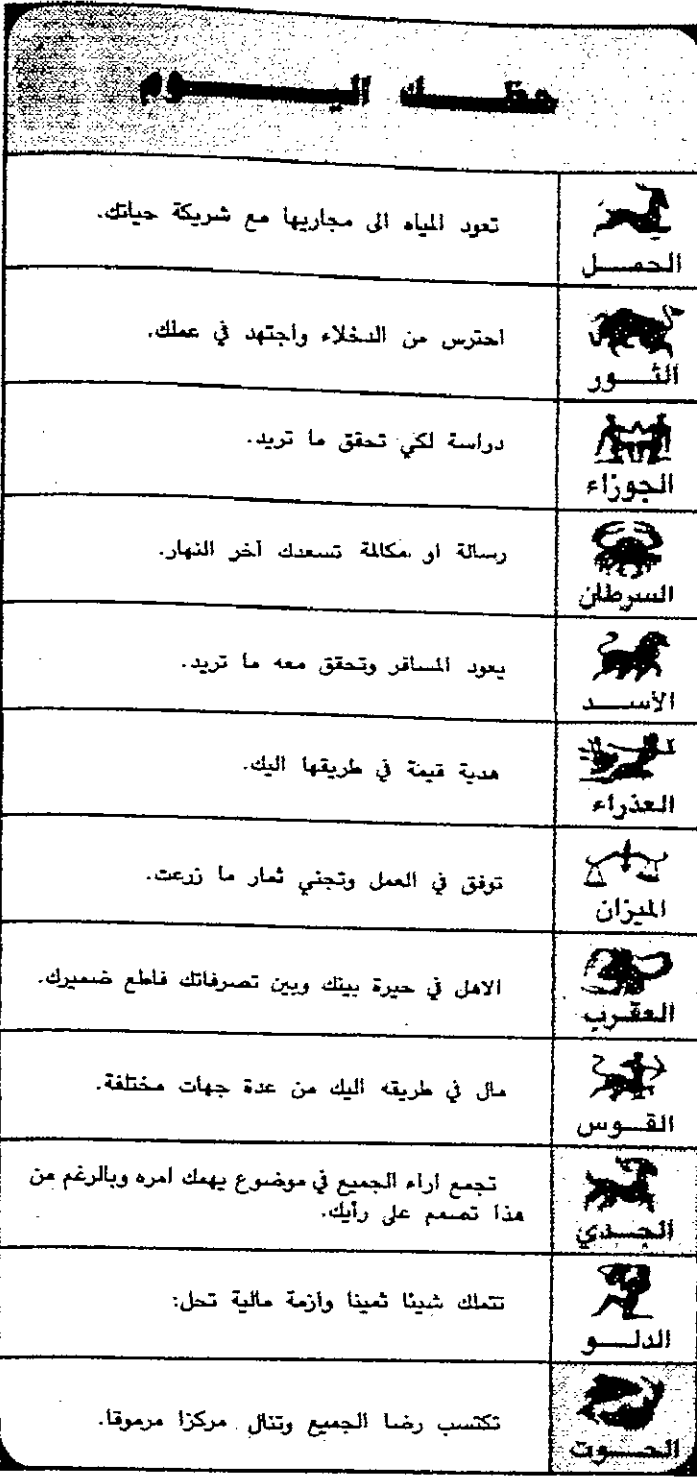 حظك اليوم
تعود المياه الى مجاريها مع شريكة حياتك.
الحمل
احترس من الدخلاء واجتهد في عملك.
الثور
دراسة لكي تحقق ما تريد.
الجوزاء
رسالة او مكالمة تسعدك آخر النهار.
السرطان
يعود المسافر وتحقق معه ما تريد.
الأسد
هدية قيمة في طريقها اليك.
العذراء
توفق في العمل وتجني ثمار ما زرعت.
الميزان
الاهل في حيرة بينك وبين تصرفاتك فاطع ضميرك.
العقرب
مال في طريقه اليك من عدة جهات مختلفة.
القوس
تجمع اراء الجميع في موضوع يهمك امره وبالرغم من
هذا تصمم على رأيك.
الجدي
تتملك شيئا ثمينا وأزمة مالية تحل:
الدلو
تكتسب رضا الجميع وتنال مركزا مرموقا.
الحوت